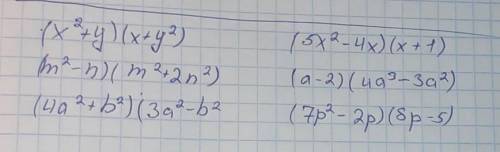 (x²+y)(x+y²)
(m²-n)(m²+2n²)
(4a²+b²)(3a²-b²
(5x²-4x)(x+1)
(a-2)(4a³-3a²)
(7p²-2p)(8p-5)